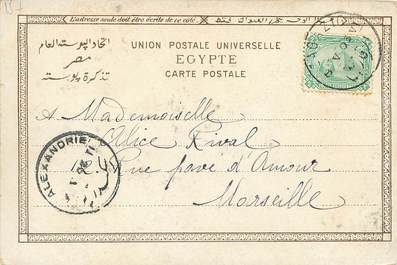 L'adresse seule doit être écrite de ce côté.
UNION POSTALE UNIVERSELLE
اتحاد البوستة العام
EGYPTE
مصر
CARTE POSTALE
تذكرة بوستة
A Mademoiselle
Alice Rival
Rue pavé d'Amour
Marseille
ALEXANDRIE